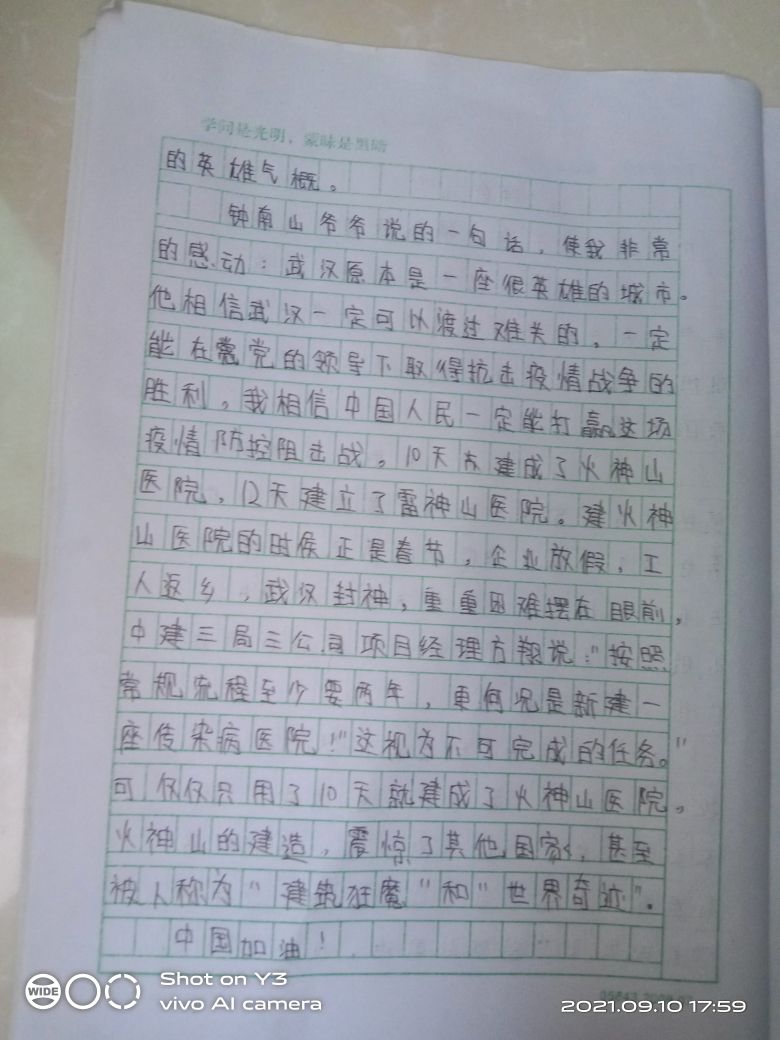 学问是光明，蒙昧是黑暗
的英雄气概。
钟南山爷爷说的一句话，使我非常
的感动：武汉原本是一座很英雄的城市。
他相信武汉一定可以渡过难关的，一定
能在党的领导下取得抗击疫情战争的
胜利。我相信中国人民一定能打赢这场
疫情防控阻击战。10天建成了火神山
医院，12天建立了雷神山医院。建火神
山医院的时候正是春节，企业放假，工
人返乡，武汉封神，重重困难摆在眼前，
中建三局三公司项目经理方翔说："按照
常规流程至少要两年，更何况是新建一
座传染病医院！"这视为不可完成的任务。"
可仅仅只用了10天就建成了火神山医院。
火神山的建造，震惊了其他国家，甚至
被人称为"建筑狂魔"和"世界奇迹"。
中国加油！
WIDE
Shot on Y3
vivo AI camera
2021.09.10 17:59